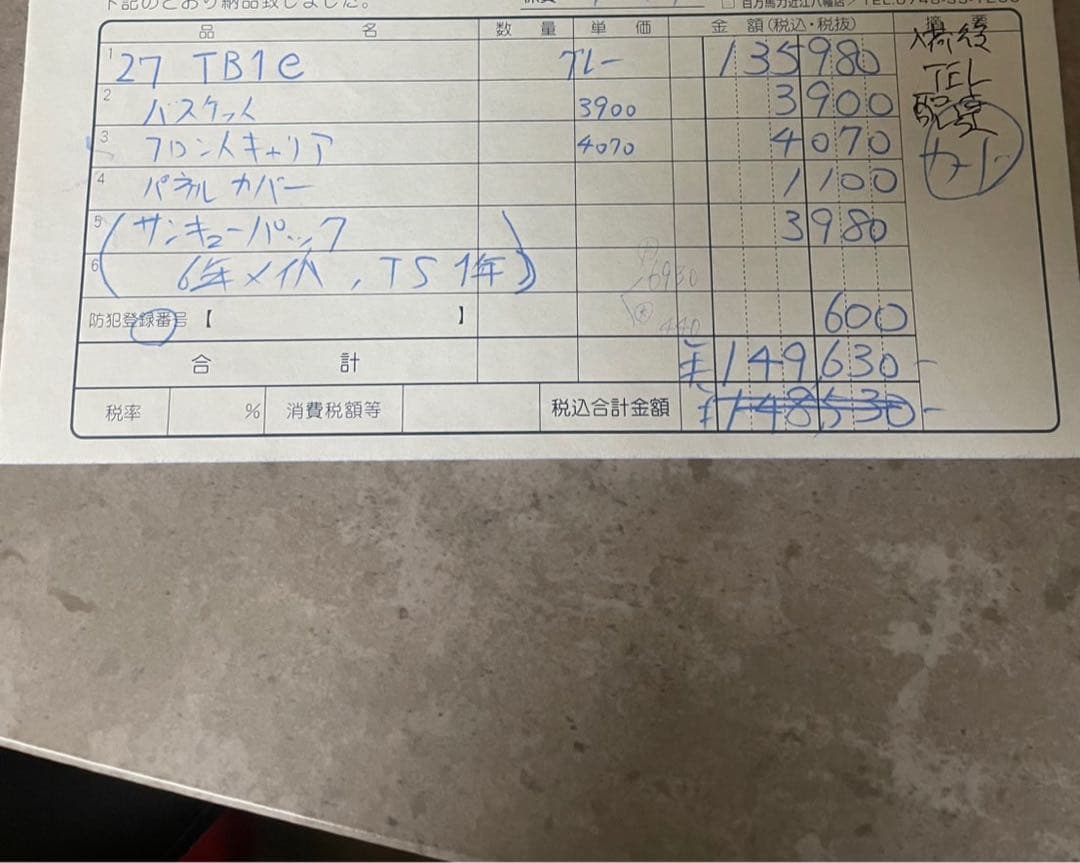 下記のとおり納品致しました。
百万馬力近江八幡店
品 名 数 量 単 価 金 額(税込・税抜) 摘 要
1 27 TB1e グレー 135980
2 バスケット 3900 3900
3 フロントキャリア 4070 4070
4 パネルカバー 1100
5 (サンキューパック 3980
6 6年メイパ, TS 1年)
防犯登録番号【 】 600
合 計 ¥149,630-
税率 % 消費税額等 税込合計金額 ¥148,530-
TEL
カード
6930
440